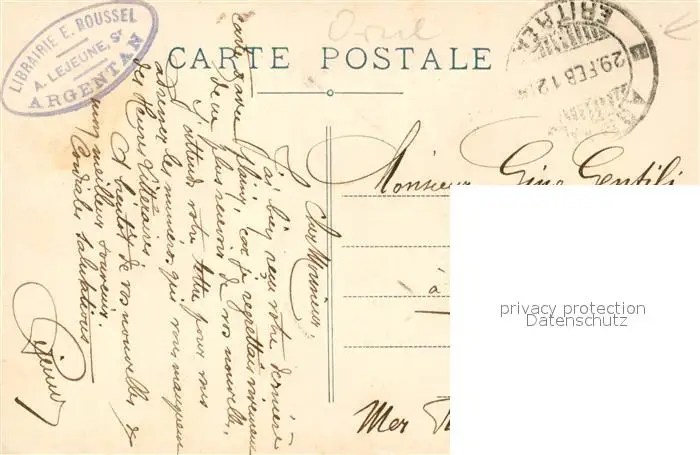 LIBRAIRIE E. ROUSSEL
A. LEJEUNE, Sr
ARGENTAN
Orne
CARTE POSTALE
ERITREA
29.FEB 12
Monsieur Gino Gentili
à
Mer
privacy protection
Datenschutz
Cher Monsieur,
J'ai bien reçu votre dernière
carte avec plaisir, car je regrettais vivement
de ne plus recevoir de vos nouvelles,
J'attends votre lettre pour vous
adresser les numéros qui vous manquent
des Heures Littéraires
A bientôt de vos nouvelles &
mon meilleur souvenir.
Cordiales salutations
Lejeune